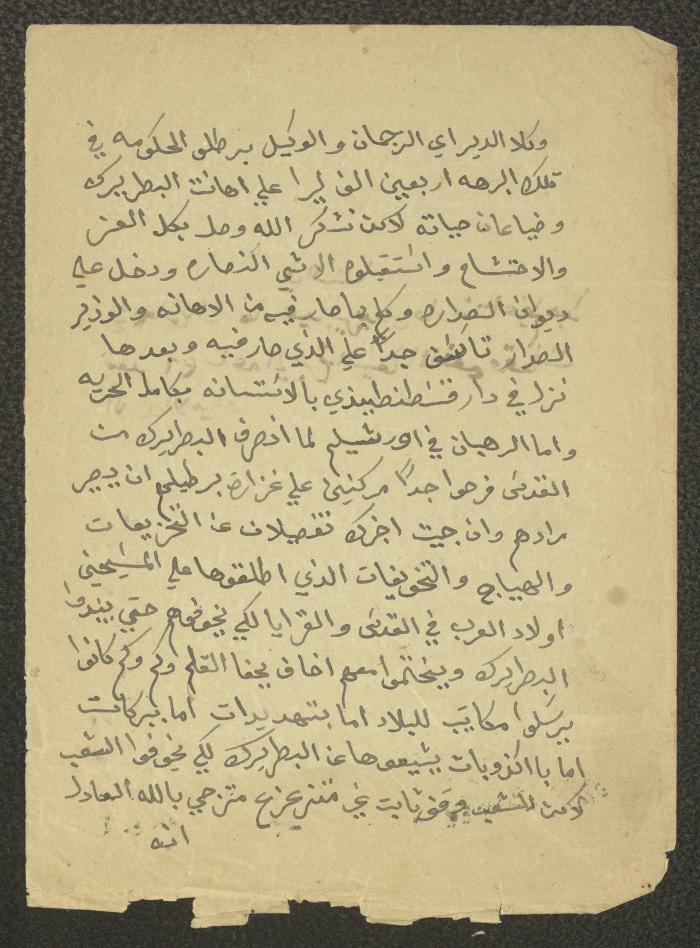 وكلا الدير اي الرجمان والوكيل برطلو الحكومه في
تلك البرهه اربعين الف ليرا علي اهانت البطريرك
وضياعان حياته لاكن نشكر الله وصل بكل العز
والاحتشام واستقبلوه الاثني الذصاره ودخل علي
ديوان الصداره وكم يا صار فيه من الاهانه والوزير
الصدار تاسف جداً علي الذي صار فيه وبعدها
نزل في دار قسطنطينذي بالائتسانه بكامل الحريه
واما الرهبان في اورشيلم لما انصرف البطريرك من
القدس فرحوا جداً مركنين علي غزارة برطيلهم ان يصير
مرادهم وان جيت اخبرك تفصيلات عن التحزيعات
والهياج والتخويفات الذي اطلقوها علي المسيحيين
اولاد العرب في القدس والقرايا لكي يخوفوهم حتي يبندوا
البطريرك ويختموا معهم اخاف يحفا القلم وكم وكم كانوا
يرسلوا مكاتيب للبلاد اما بتهديدات اما ببركات
اما باالكزوبات يشيعوها عن البطريرك لكي يخوفوا الشعب
لاكن الشعب وقف ثابت غير متزعزع مترجي بالله العادل
انه